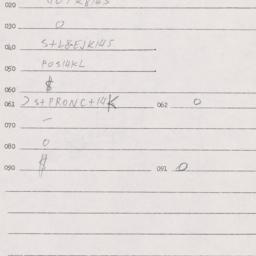 020
030 0
040 S+L&EJK145
050 POS14KL
060 $
061 >S+PRONC+14K 062 0
070 -
080 0
$
090 091 0